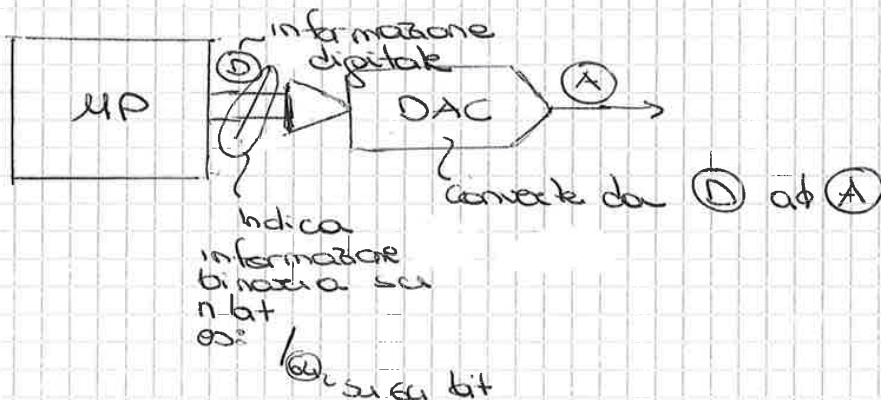 informazione
digitale
D
μP
DAC
A
converte da D ad A
indica
informazione
binaria su
n bit
es:
/64
su 64 bit